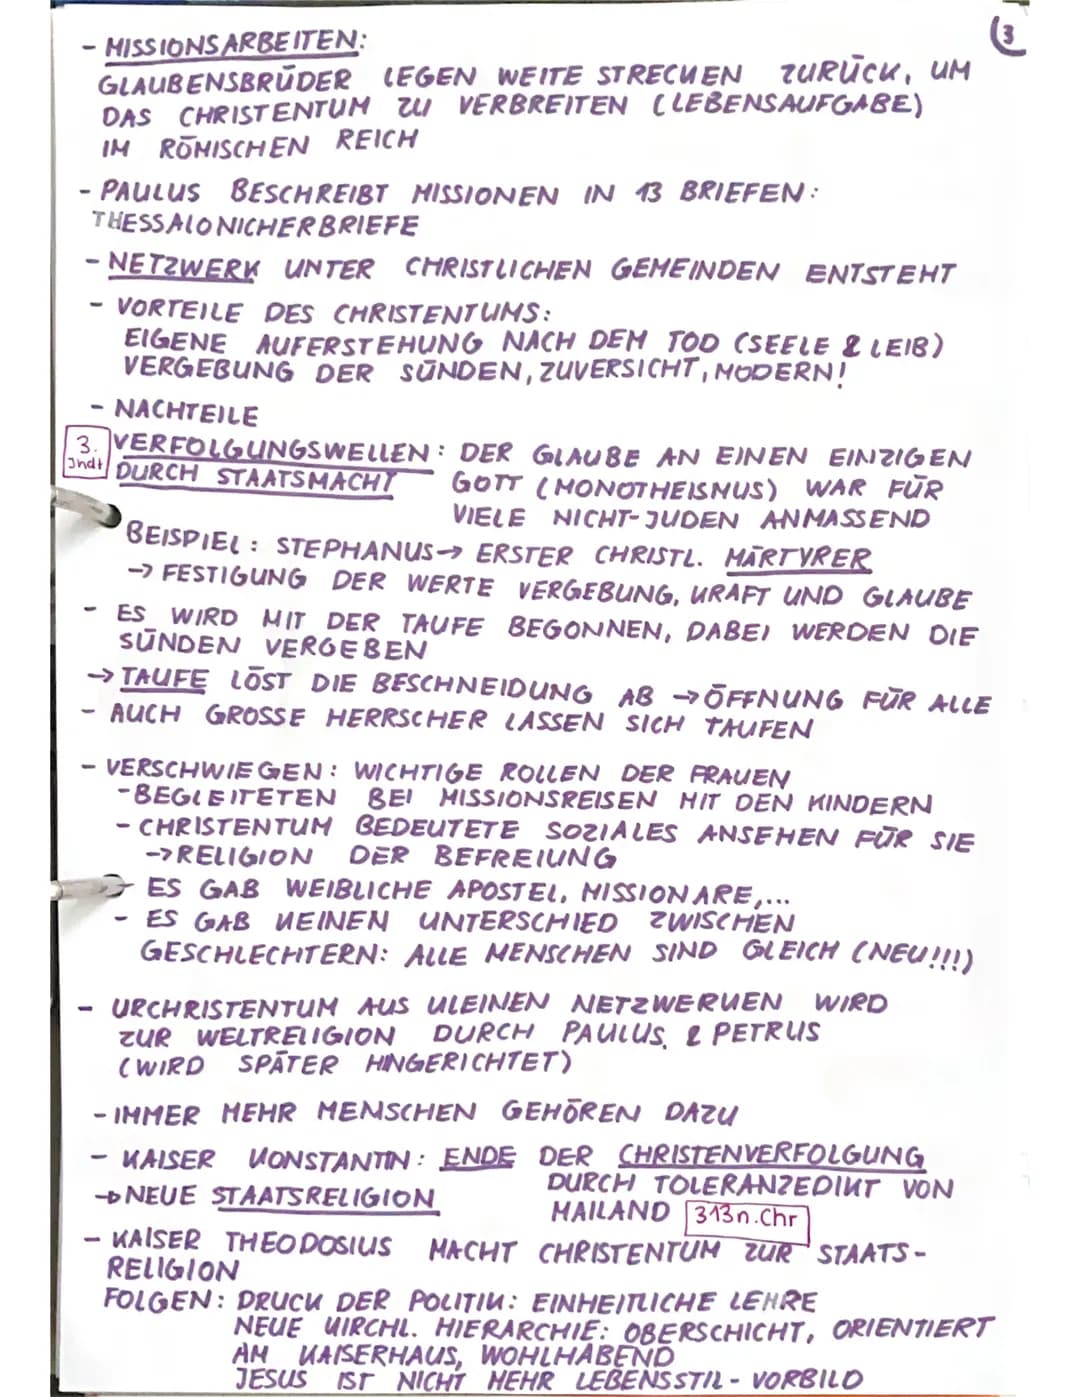 3
- MISSIONSARBEITEN:
GLAUBENSBRÜDER LEGEN WEITE STRECKEN ZURÜCK, UM
DAS CHRISTENTUM ZU VERBREITEN (LEBENSAUFGABE)
IM RÖMISCHEN REICH
- PAULUS BESCHREIBT MISSIONEN IN 13 BRIEFEN:
THESSALONICHERBRIEFE
- NETZWERK UNTER CHRISTLICHEN GEMEINDEN ENTSTEHT
- VORTEILE DES CHRISTENTUMS:
EIGENE AUFERSTEHUNG NACH DEM TOD (SEELE & LEIB)
VERGEBUNG DER SÜNDEN, ZUVERSICHT, MODERN!
- NACHTEILE
3. Jhdt VERFOLGUNGSWELLEN: DER GLAUBE AN EINEN EINZIGEN
DURCH STAATSMACHT GOTT (MONOTHEISMUS) WAR FÜR
VIELE NICHT-JUDEN ANMASSEND
BEISPIEL: STEPHANUS → ERSTER CHRISTL. MÄRTYRER
→ FESTIGUNG DER WERTE VERGEBUNG, KRAFT UND GLAUBE
- ES WIRD MIT DER TAUFE BEGONNEN, DABEI WERDEN DIE
SÜNDEN VERGEBEN
→ TAUFE LÖST DIE BESCHNEIDUNG AB → ÖFFNUNG FÜR ALLE
- AUCH GROSSE HERRSCHER LASSEN SICH TAUFEN
- VERSCHWIEGEN: WICHTIGE ROLLEN DER FRAUEN
- BEGLEITETEN BEI MISSIONSREISEN MIT DEN KINDERN
- CHRISTENTUM BEDEUTETE SOZIALES ANSEHEN FÜR SIE
→ RELIGION DER BEFREIUNG
- ES GAB WEIBLICHE APOSTEL, MISSIONARE,...
- ES GAB KEINEN UNTERSCHIED ZWISCHEN
GESCHLECHTERN: ALLE MENSCHEN SIND GLEICH (NEU!!!)
- URCHRISTENTUM AUS KLEINEN NETZWERKEN WIRD
ZUR WELTRELIGION DURCH PAULUS & PETRUS
(WIRD SPÄTER HINGERICHTET)
- IMMER MEHR MENSCHEN GEHÖREN DAZU
- KAISER KONSTANTIN: ENDE DER CHRISTENVERFOLGUNG
→ NEUE STAATSRELIGION DURCH TOLERANZEDIKT VON
MAILAND 313 n. Chr
- KAISER THEODOSIUS MACHT CHRISTENTUM ZUR STAATS-
RELIGION
FOLGEN: DRUCK DER POLITIK: EINHEITLICHE LEHRE
NEUE KIRCHL. HIERARCHIE: OBERSCHICHT, ORIENTIERT
AM KAISERHAUS, WOHLHABEND
JESUS IST NICHT MEHR LEBENSSTIL - VORBILD